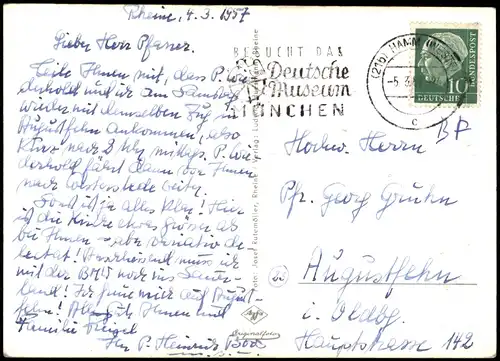 Rheine, 4.3.1957
Lieber Herr Pfarrer.
Teile Ihnen mit, dass P. Wie
derhold und ich am Samstag
wieder mit demselben Zug in
Augustfehn ankommen, also
kurz nach 2 Uhr mittags. P. Wie
derhold fährt dann von Ihnen
nach Westerstede weiter.
Sonst ist ja alles klar! Hier
ist die Kirche etwas größer als
bei Ihnen - aber
lastet! Anschliessend muss ich
mit der BMW noch ins Sauer-
land! Ich freue mich auf August-
fehn! Alles Gute Ihnen und
Familie
Ihr P. Heinrich
BESUCHT DAS
Deutsche
Museum
MÜNCHEN
(21b) HAMM (WESTF)
-5.3.
c
DEUTSCHE
BUNDESPOST
10
BP
Hochw. Herrn
Pfr. Georg
Augustfehn
i. Oldbg.
Hauptstrasse 142
Agfa
Originalfoto